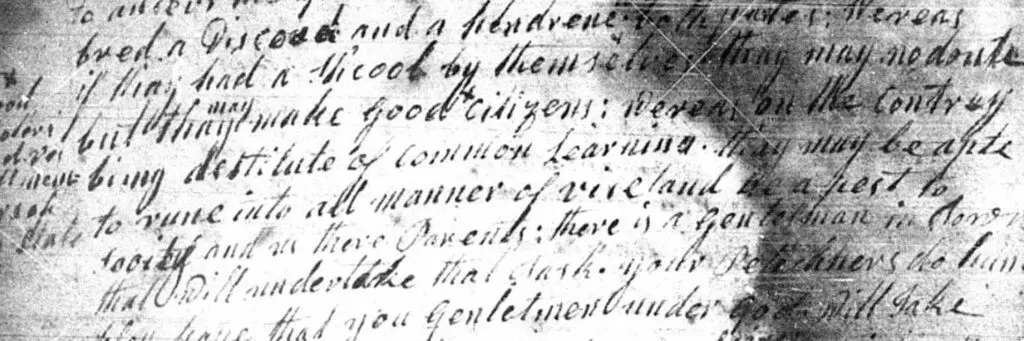 to answer
bred a Discord and a hendrence both parties; wereas
if thay had a Shcool by themselves thay may no doute
but thay may make good Citizens; wereas on the Contrey
bimg destitute of Common Learning. thay may be apte
to rune into all manner of vice and be a pest to
and us there Parents; there is a gentelman in
that will undertake that Task. your Petichners do hum
that you Genletmen under God. will take